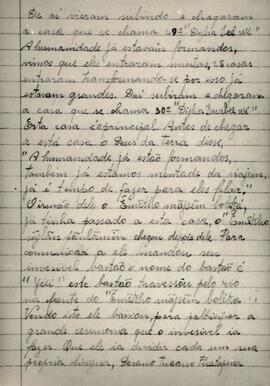 De aí vieram subindo e chegaram
a casa que se chama 29ª "Diphá
A humanidade já estavam formandos,
vimos que eles entraram neutas, 28 casas
entraram transformando-se por isso já
estavam grandes. Daí subiram e chegaram
a casa que se chama 30ª
Esta casa é principal. Antes de chegar
a está casa. o Deus da terra disse,
"A humanidade já estão formandos,
tambem já estamos metade da viajem,
já é tempo de fazer para eles falar."
O irmão dele o "Emẽkho mãpsẽin boleka",
já tinha passado a esta casa, o "Emẽkho
sʉlãn pãnlãmĩn chegou depois dele. Para
comunicar a ele mandou seu
invesivel bastão o nome do bastão é
este bastão travessou pelo rio
na frente do "Emẽkho mãpsẽin boleka".
Vendo isto ele baixou, para participar a
grande cerimona que o invesivel ia
fazer. Que ele ia dividir cada um sua
propria lingua, Desano tucano Piratapuia